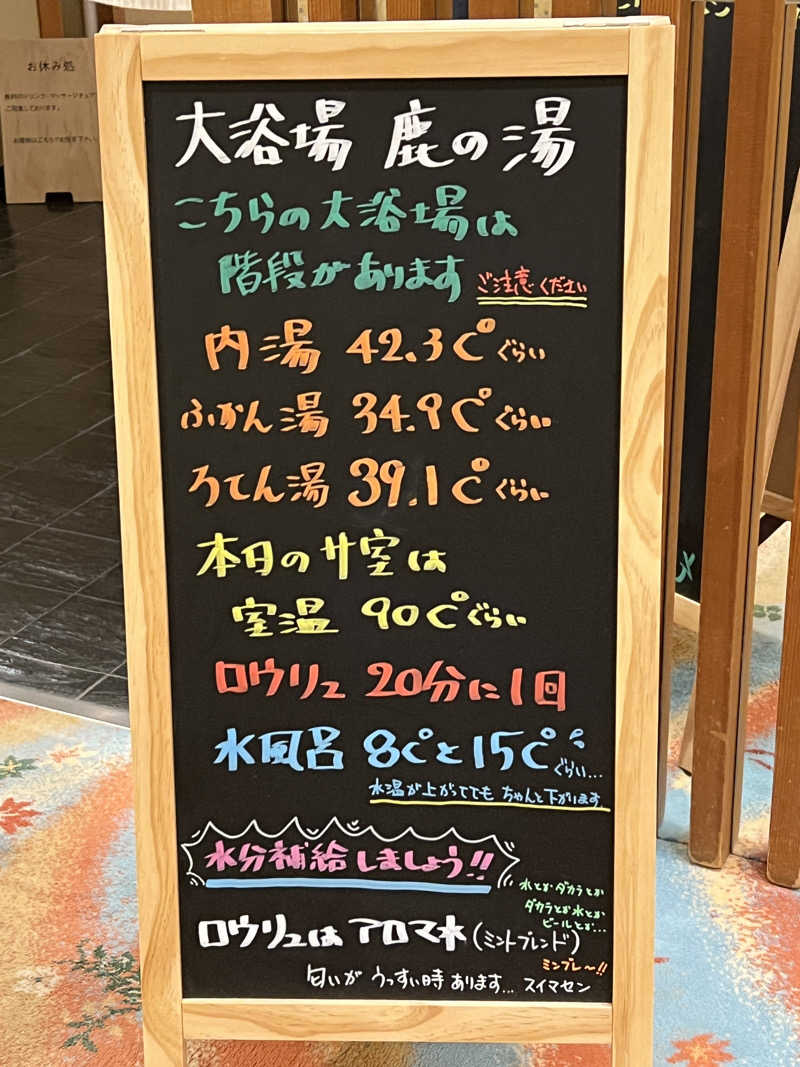 お休み処
大浴場 鹿の湯
こちらの大浴場は
階段があります ご注意ください
内湯 42.3℃ぐらい
ふかん湯 34.9℃ぐらい
ろてん湯 39.1℃ぐらい
本日のサ室は
室温 90℃ぐらい
ロウリュ 20分に1回
水風呂 8℃と15℃ぐらい...
水温が上がってても ちゃんと下がります
水分補給しましょう!!
水とか ダカラとか
ダカラとか水とか
ビールとか...
ロウリュは アロマ水(ミントブレンド)
ミンブレ〜!!
匂いが うっすい時 あります... スイマセン